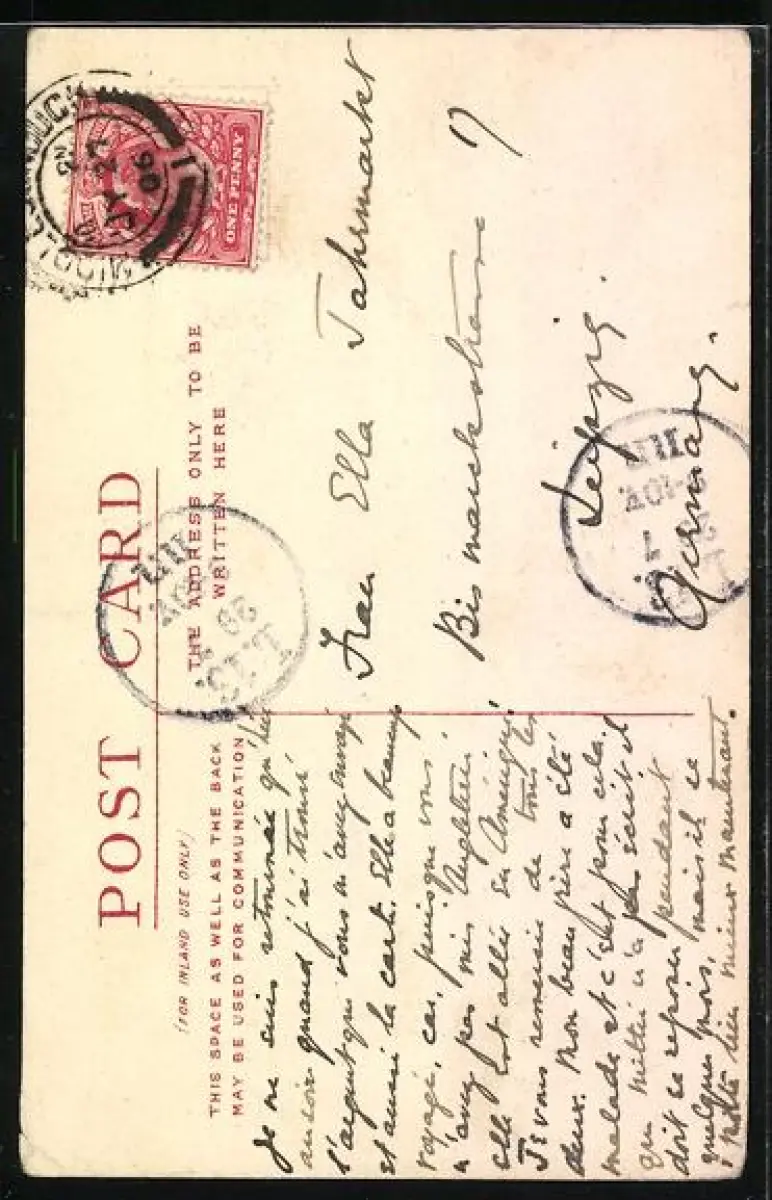 POST CARD
(FOR INLAND USE ONLY)
THIS SPACE AS WELL AS THE BACK
MAY BE USED FOR COMMUNICATION
THE ADDRESS ONLY TO BE
WRITTEN HERE
ONE PENNY
JY 27
06
Je ne suis retournée qu'hier
au soir quand j'ai trouvé
l'argent que vous m'avez envoyé
et aussi la carte. Elle a beaucoup
voyagé, car, puisque vous
n'avez pas mis Angleterre
elle est allée en Amérique!
Je vous remercie de tous les
deux. Mon beau père a été
malade et c'est pour cela
qu' n'a pas écrit il
doit se reposer pendant
quelques mois, mais il se
bien mieux maintenant.
Frau Ella Jahrmarkt
Bismarckstrasse 17
Leipzig.
Germany.